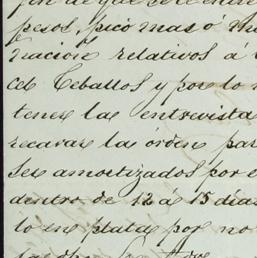 fin de que se le entre
pesos, pico mas ó me
nacion relativos á
ceb Ceballos y por lo
tener las entrevista
recavar las órden par
ser amortizados por e
dentro de 12 á 15 dias
lo en plata por no